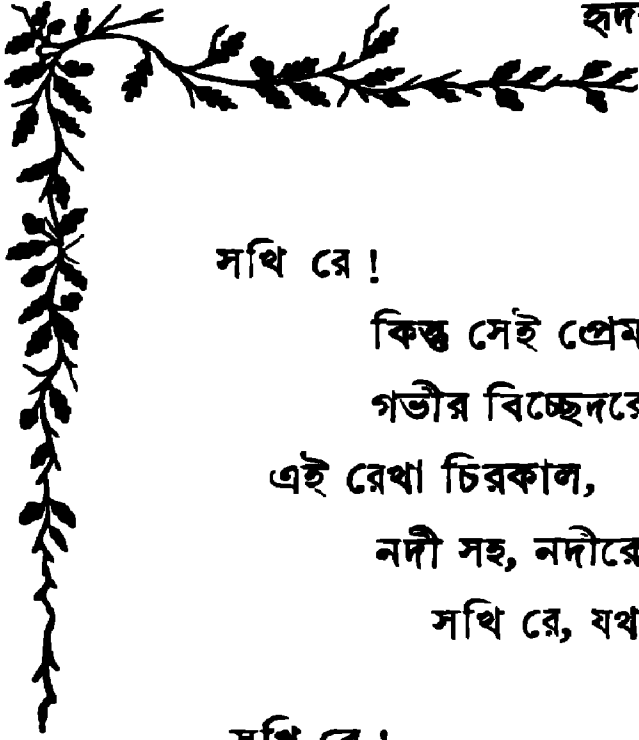 হৃদ
সখি রে !
কিন্তু সেই প্রেম
গভীর বিচ্ছেদরে
এই রেখা চিরকাল,
নদী সহ, নদীরে
সখি রে, যথ
সখি রে !